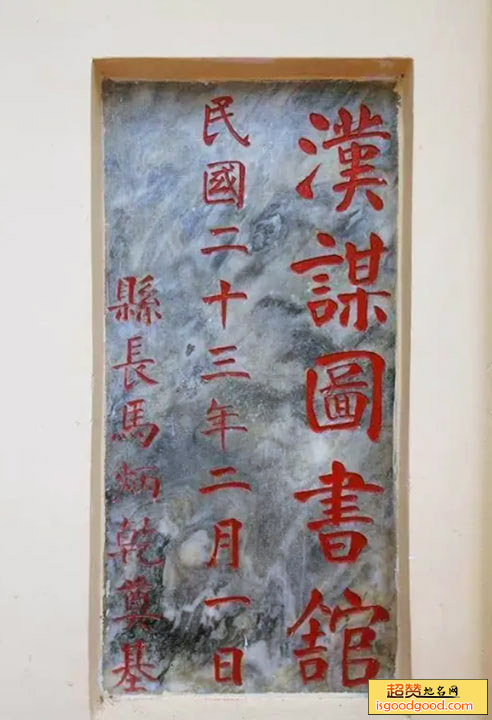 漢謀圖書舘
民國二十三年二月一日
縣長馬炳乾奠基
超赞地名网
isgoodgood.com